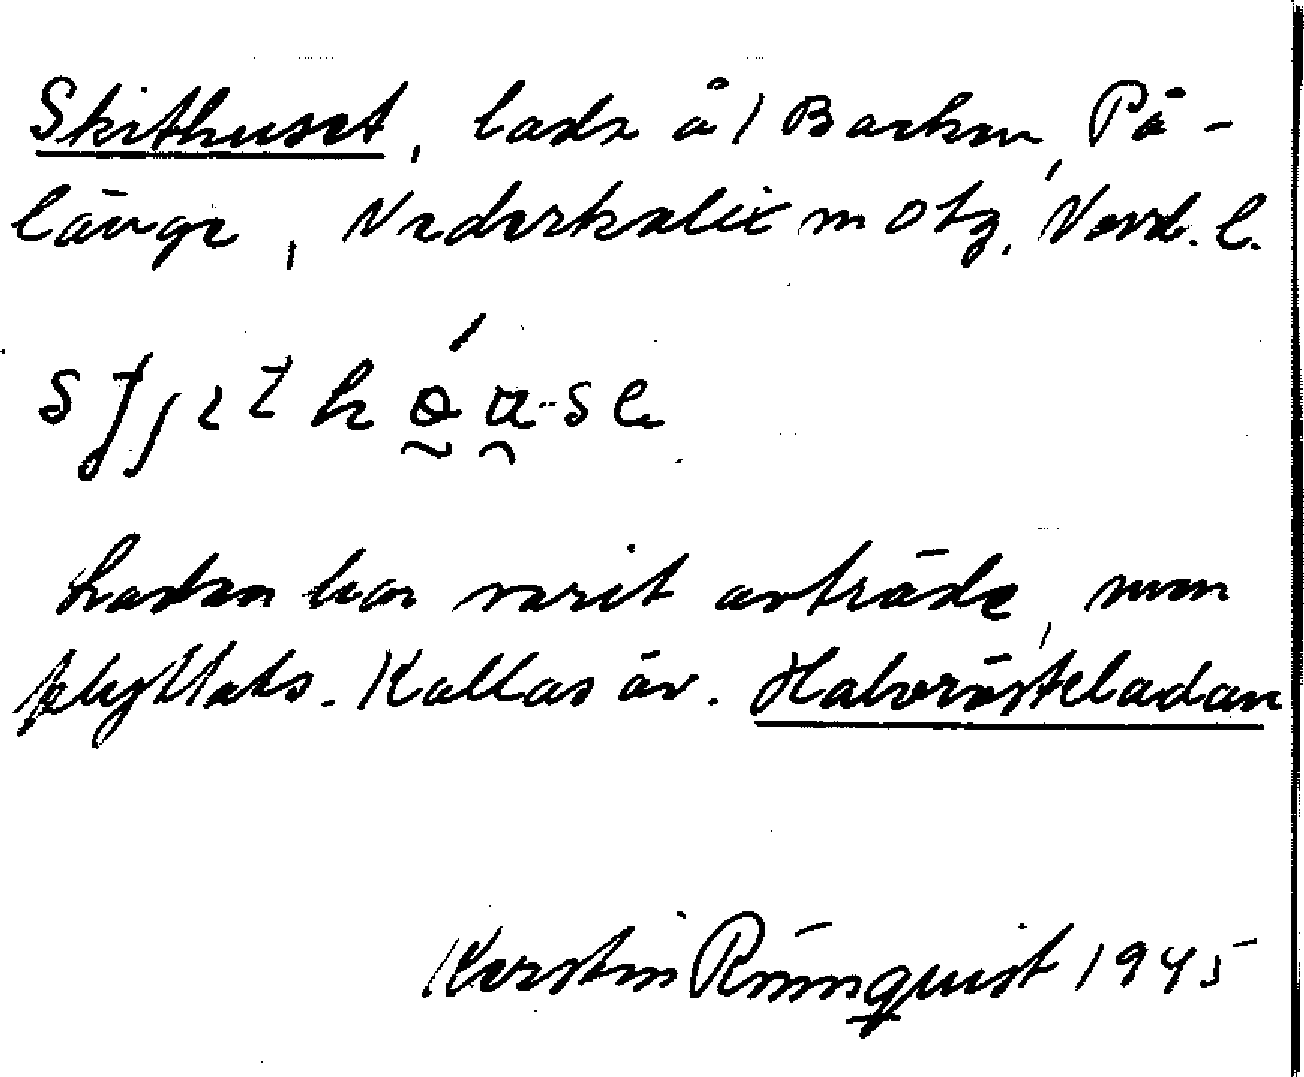 Skithuset, lada å 1 Backen, På-
länge, Nederkalix m otg. Norrb. l.
Ladan har varit avträde, men
flyttats. Kallas äv. Halvrösteladan
Kerstin Rönnquist 1945